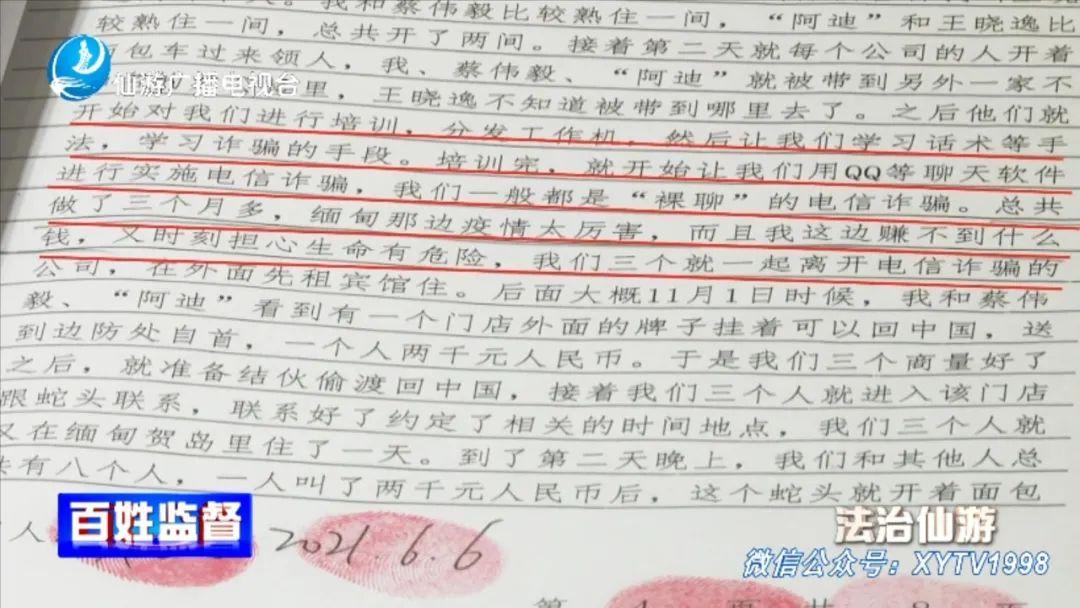 我和蔡伟毅比较熟住一间，“阿迪”和王晓逸比
较熟住一间，总共开了两间。接着第二天就每个公司的人开着
面包车过来领人，我、蔡伟毅、“阿迪”就被带到另外一家不
里，王晓逸不知道被带到哪里去了。之后他们就
仙游广播电视台
开始对我们进行培训，分发工作机，然后让我们学习话术等手
法，学习诈骗的手段。培训完，就开始让我们用QQ等聊天软件
进行实施电信诈骗，我们一般都是“裸聊”的电信诈骗。总共
做了三个月多，缅甸那边疫情太厉害，而且我这边赚不到什么
钱，又时刻担心生命有危险，我们三个就一起离开电信诈骗的
公司，在外面先租宾馆住。后面大概11月1日时候，我和蔡伟
毅、“阿迪”看到有一个门店外面的牌子挂着可以回中国，送
到边防处自首，一个人两千元人民币。于是我们三个商量好了
之后，就准备结伙偷渡回中国，接着我们三个人就进入该门店
跟蛇头联系，联系好了约定了相关的时间地点，我们三个人就
又在缅甸贺岛里住了一天。到了第二天晚上，我们和其他人总
共有八个人，一人叫了两千元人民币后，这个蛇头就开着面包
人
2021.6.6
百姓监督
法治仙游
微信公众号：XYTV1998
第 4 页 共 8